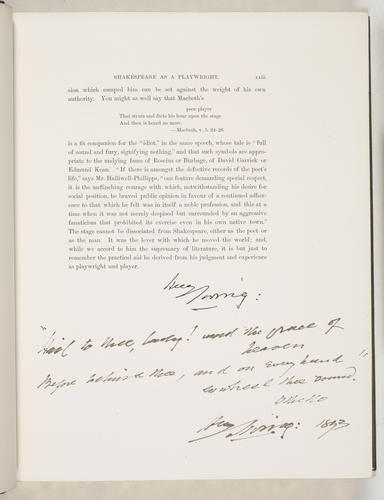 SHAKESPEARE AS A PLAYWRIGHT. xxiii
sion which escaped him can be set against the weight of his own
authority. You might as well say that Macbeth's
poor player
That struts and frets his hour upon the stage
And then is heard no more.
—Macbeth, v. 5. 24-26.
is a fit companion for the "idiot," in the same speech, whose tale is "full
of sound and fury, signifying nothing," and that such symbols are appro-
priate to the undying fames of Roscius or Burbage, of David Garrick or
Edmund Kean. "If there is amongst the defective records of the poet's
life," says Mr. Halliwell-Phillipps, "one feature demanding special respect,
it is the unflinching courage with which, notwithstanding his desire for
social position, he braved public opinion in favour of a continued adher-
ence to that which he felt was in itself a noble profession, and this at a
time when it was not merely despised but surrounded by an aggressive
fanaticism that prohibited its exercise even in his own native town."
The stage cannot be dissociated from Shakespeare, either as the poet or
as the man. It was the lever with which he moved the world; and,
while we accord to him the supremacy of literature, it is but just to
remember the practical aid he derived from his judgment and experience
as playwright and player.
Henry Irving:
"Hail to thee, lady! and the grace of
heaven
Before behind thee, and on every hand
enwheel thee round."
Othello
Henry Irving: 1893